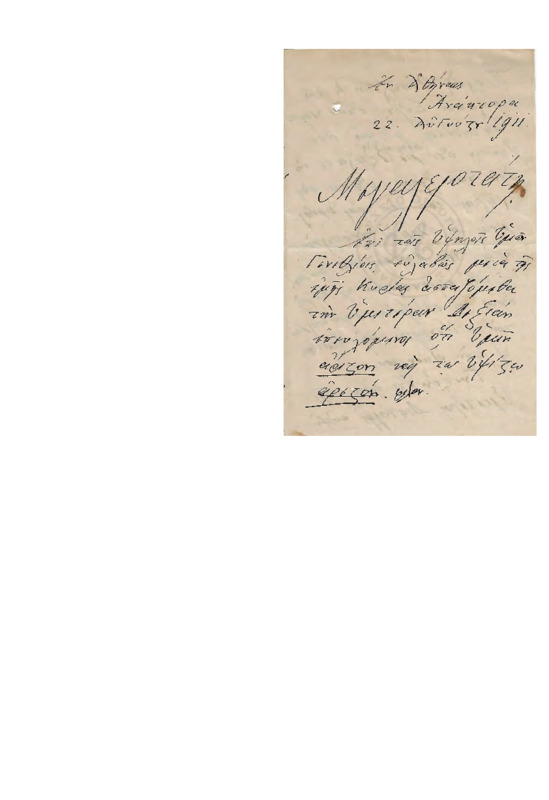 Ἐν Ἀθήναις
Ἀνάκτορα
22. Αὐγούστου 1911
Μεγαλειοτάτη,
Ἐπὶ τοῖς Ὑψηλοῖς Ὑμῶν
Γενεθλίοις, εὐλαβῶς μετὰ τῆς
ἐμῆς Κυρίας ἀσπαζόμεθα
τὴν Ὑμετέραν Δεξιὰν
ὅτι Ὑμῖν
ἄριστον καὶ τῷ Ὑψίστῳ
ἀρεστόν.